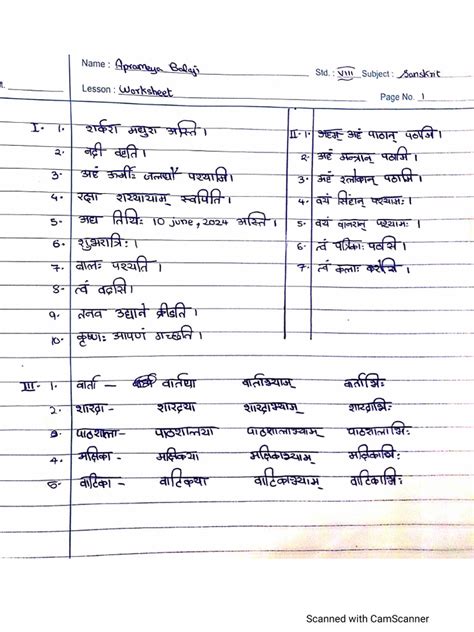 Name : Aprameya Balaji
Std. : VIII Subject : Sanskrit
Lesson : Worksheet
Page No. 1
I. 1. शर्करा मधुरा अस्ति ।
2. नदी वहति ।
3. अहं जलधौ पश्यामि ।
4. रक्षा शय्यायाम् स्वपिति ।
5. अद्य तिथिः 10 June, 2024 अस्ति ।
6. शुभरात्रिः ।
7. बालः पश्यति ।
8. त्वं वदसि ।
9. तनव उद्याने क्रीडति ।
10. कृष्णः आपणं गच्छति ।
II. 1. अहं पाठान् पठामि ।
2. अहं मन्त्रान् पठामि ।
3. अहं श्लोकान् पठामि ।
4. वयं सिंहान् पश्यामः ।
5. वयं वानरान् पश्यामः ।
6. त्वं पत्रिकाः पठसि ।
7. त्वं कलाः करोषि ।
III. 1. वार्ता - वार्तया वार्ताभ्याम् वार्ताभिः
2. शारदा - शारदया शारदाभ्याम् शारदाभिः
3. पाठशाला - पाठशालया पाठशालाभ्याम् पाठशालाभिः
4. मक्षिका - मक्षिकया मक्षिकाभ्याम् मक्षिकाभिः
5. वाटिका - वाटिकया वाटिकाभ्याम् वाटिकाभिः
Scanned with CamScanner